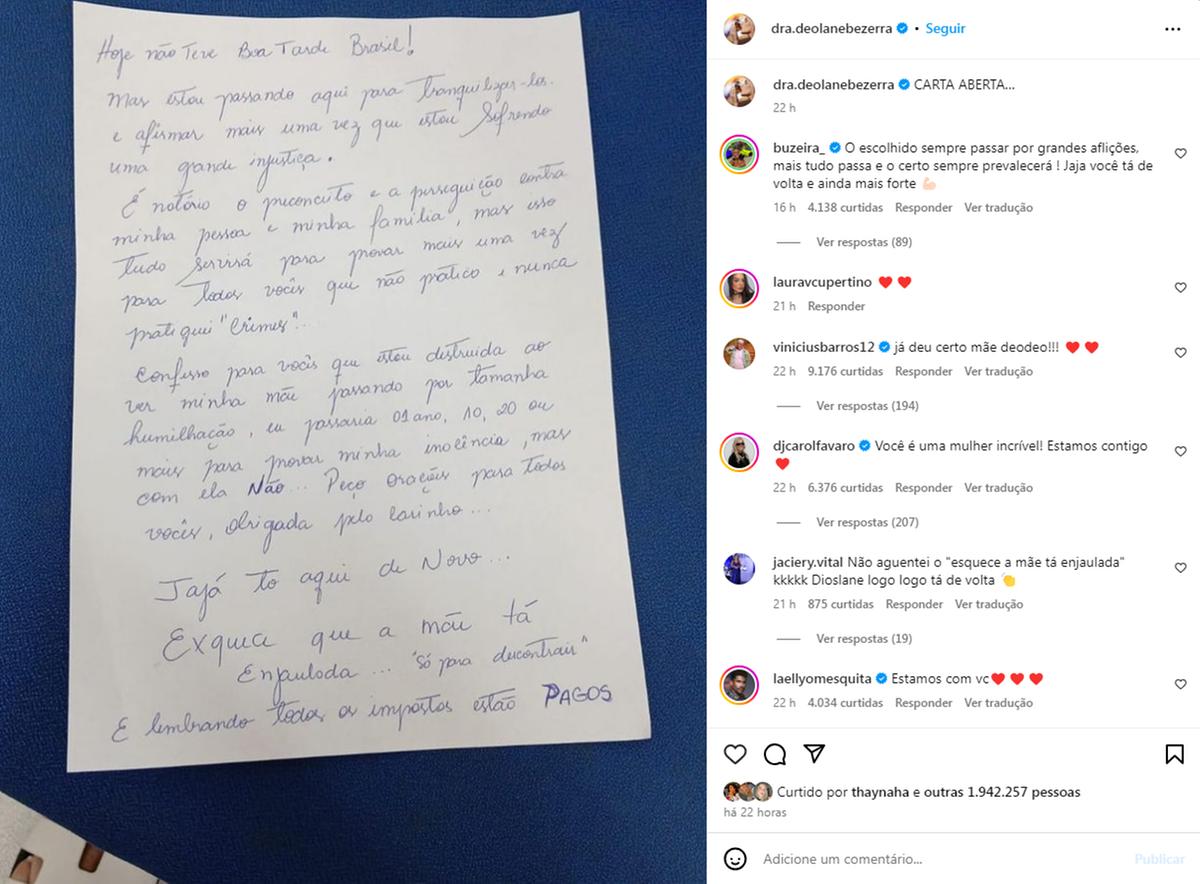 Hoje não Teve Boa Tarde Brasil!
Mas estou passando aqui para Tranquilizar-los.
e afirmar mais uma vez que estou Sofrendo
uma grande injustiça.
É notório o preconceito e a perseguição contra
minha pessoa e minha família, mas isso
Tudo Servirá para provar mais uma vez
para Todos vocês que não pratico e nunca
pratiquei "Crimes"...
Confesso para vocês que estou distruida ao
ver minha mãe passando por tamanha
humilhação, eu passaria 01 ano, 10, 20 ou
mais para provar minha inocência, mas
com ela Não... Peço orações para todos
vocês, obrigada pelo carinho...
Jajá to aqui de Novo...
Exquece que a mãe tá
Enjaulada... "Só para descontrair"
E lembrando todos os impostos estão PAGOS
dra.deolanebezerra • Seguir
dra.deolanebezerra CARTA ABERTA...
22 h
buzeira_ O escolhido sempre passar por grandes aflições,
mais tudo passa e o certo sempre prevalecerá ! Jaja você tá de
volta e ainda mais forte 💪🏻
16 h 4.138 curtidas Responder Ver tradução
Ver respostas (89)
lauravcupertino ❤️ ❤️
21 h Responder
viniciusbarros12 já deu certo mãe deodeo!!! ❤️ ❤️
22 h 9.176 curtidas Responder Ver tradução
Ver respostas (194)
djcarolfavaro Você é uma mulher incrível! Estamos contigo
❤️
22 h 6.376 curtidas Responder Ver tradução
Ver respostas (207)
jaciery.vital Não aguentei o "esquece a mãe tá enjaulada"
kkkkk Dioslane logo logo tá de volta 👏
21 h 875 curtidas Responder Ver tradução
Ver respostas (19)
laellyomesquita Estamos com vc❤️ ❤️ ❤️
22 h 4.034 curtidas Responder Ver tradução
Curtido por thaynaha e outras 1.942.257 pessoas
há 22 horas
Adicione um comentário...
Publicar